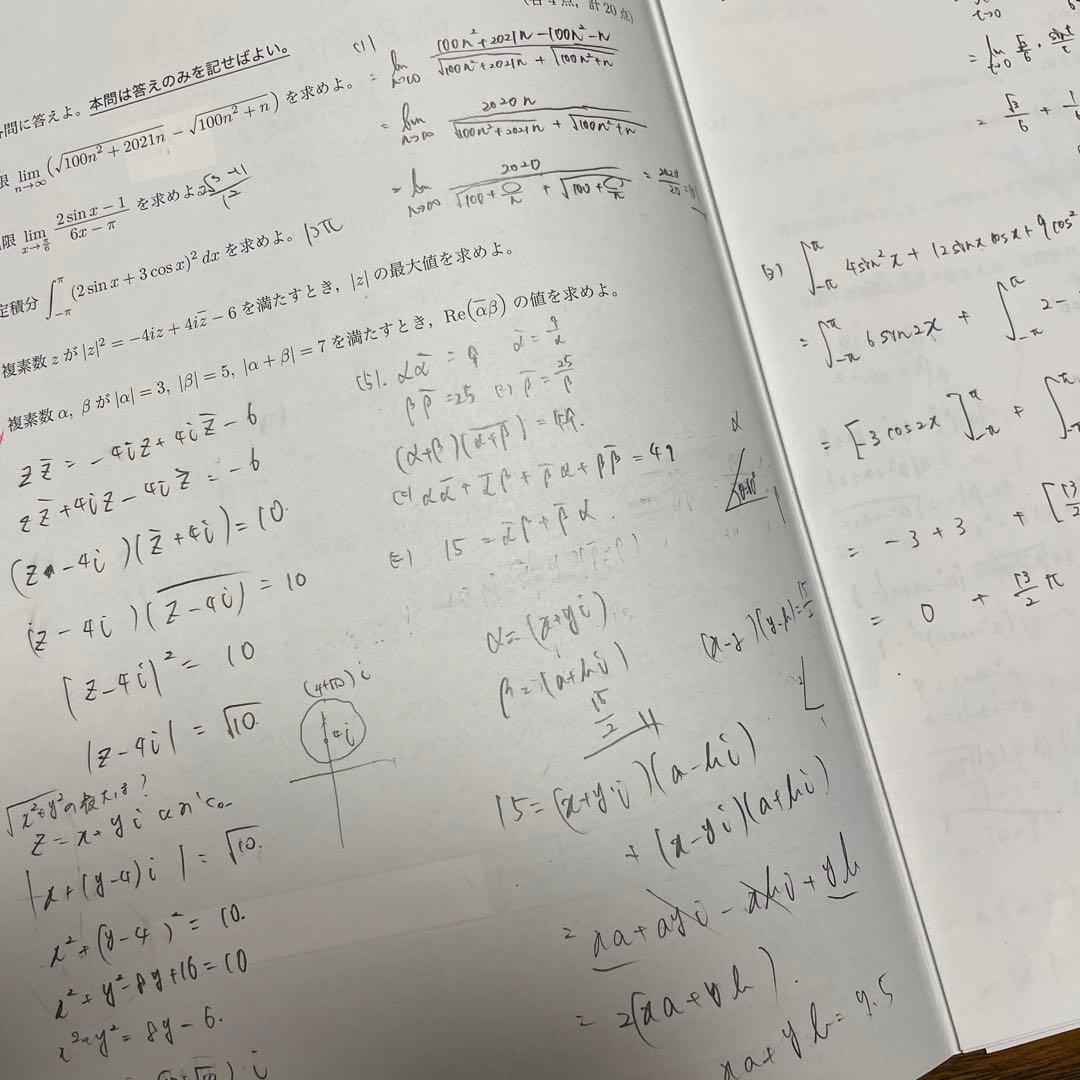 (各4点，計20点)
問に答えよ。本問は答えのみを記せばよい。
限 lim n→∞ (√(100n²+2021n) − √(100n²+n)) を求めよ。
限 lim x→π/6 (2 sin x − 1)/(6x − π) を求めよ
定積分 ∫_{−π}^{π} (2 sin x + 3 cos x)² dx を求めよ。 13π
複素数 z が |z|² = −4iz + 4iz̄ − 6 を満たすとき，|z| の最大値を求めよ。
複素数 α, β が |α| = 3, |β| = 5, |α + β| = 7 を満たすとき，Re(ᾱβ) の値を求めよ。
(1)
= lim n→∞ (100n²+2021n−100n²−n)/(√(100n²+2021n) + √(100n²+n))
= lim n→∞ 2020n/(√(100n²+2021n) + √(100n²+n))
= lim n→∞ 2020/(√(100+○/n) + √(100+○/n)) = 2020/20
zz̄ = −4iz+4iz̄−6
zz̄+4iz−4iz̄ = −6
(z−4i)(z̄+4i) = 10.
(z−4i)(\overline{z−4i}) = 10
|z−4i|² = 10
|z−4i| = √10.
(4+√10)i
4i
√(x²+y²)の最大は?
z = x+yi
|x+(y−4)i| = √10.
x²+(y−4)² = 10.
x²+y²−8y+16 = 10
x²+y² = 8y−6.
(5). αᾱ = 9 ᾱ = 9/α
ββ̄ = 25 β̄ = 25/β
(α+β)(\overline{α+β}) = 49.
αᾱ+ᾱβ+β̄α+ββ̄ = 49
15 = ᾱβ+β̄α.
α
β
α = (x+yi)
β = (a+bi)
15/2
15 = (x+yi)(a−bi)
+ (x−yi)(a+bi)
= xa+ayi−xbi+yb
= 2(xa+yb).
xa+yb = 7.5
t→0
= lim t→0 √3/6 · sin t/t
= √3/6 +
(3) ∫_{−π}^{π} 4sin²x + 12 sinx cosx + 9 cos²
= ∫_{−π}^{π} 6 sin2x + ∫_{−π}^{π}
= [−3 cos2x]_{−π}^{π} + ∫_{−π}
= −3+3 + [13/2
= 0 + 13/2 π